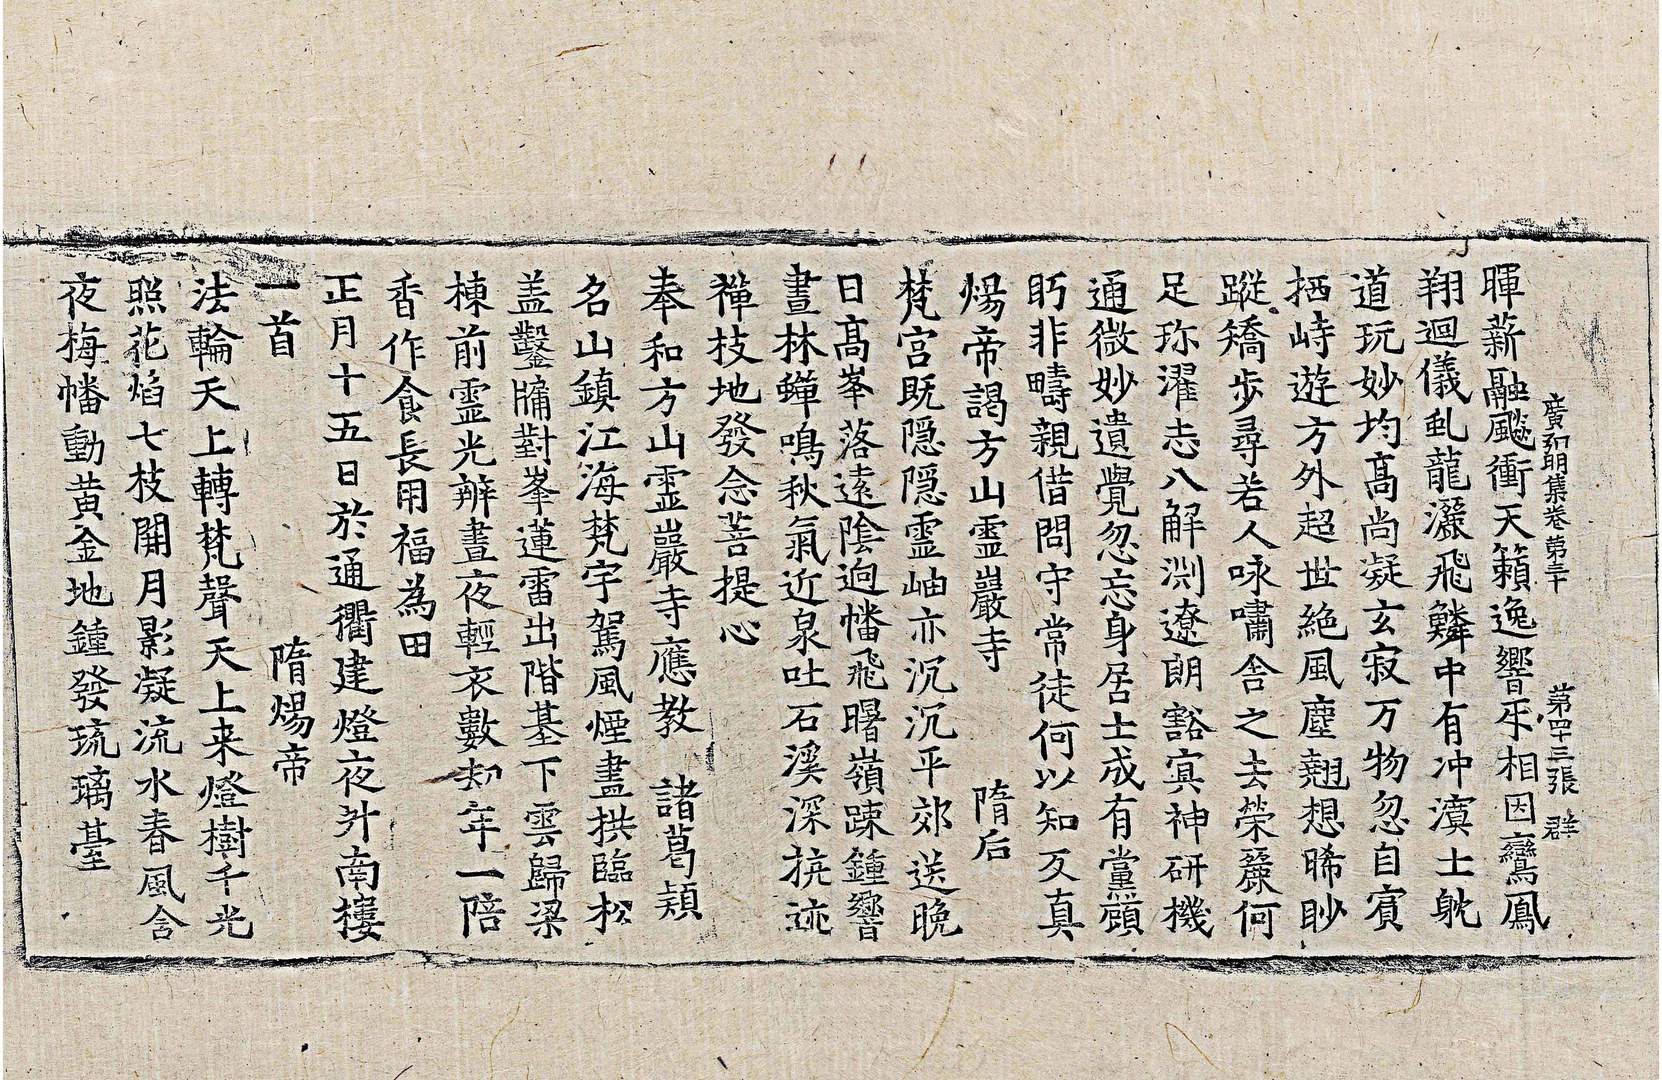 廣弘明集卷第三十　第四十三張　群
暉薪融飈衝天籟逸響乎相因鸞鳳
翔迴儀乱龍灑飛鱗中有冲漠士躭
道玩妙均髙尚凝玄寂万物忽自賓
栖峙遊方外超世絶風塵翹想晞眇
蹤矯步尋若人咏嘯舎之去榮麗何
足珎濯志八解渕遼朗豁㝠神研機
通微妙遺覺忽忘身居士成有黨顧
眄非疇親借問守常徒何以知反真
煬帝謁方山霊巖寺　隋后
梵宮既隠隠霊岫亦沉沉平郊送晩
日髙峯落逺陰迥幡飛曙嶺踈鍾響
晝林蟬鳴秋氣近泉吐石溪深抗迹
禪枝地發念菩提心
奉和方山霊巖寺應教　諸葛穎
名山鎮江海梵宇駕風煙畫拱臨松
盖鑿牖對峯蓮雷出階基下雲歸梁
棟前霊光辨晝夜輕衣數刼年一陪
香作食長用福為田
正月十五日於通衢建燈夜升南樓
一首　隋煬帝
法輪天上轉梵聲天上来燈樹千光
照花焰七枝開月影凝流水春風含
夜梅幡動黄金地鍾發琉璃䑓